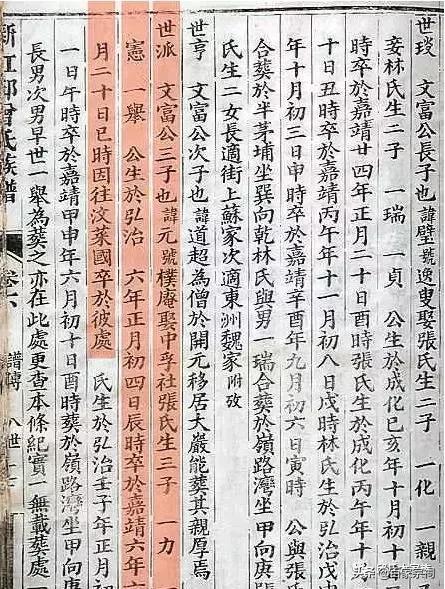 世琰 文富公長子也諱璧號逸叟娶張氏生二子 一化 一親
妾林氏生二子 一瑞 一貞 公生於成化己亥年十月初十
時卒於嘉靖廿四年正月二十日酉時張氏生於成化丙午年十
十日丑時卒於嘉靖丙午年十一月初八日戌時林氏生於弘治戊
年十月初三日申時卒於嘉靖辛酉年九月初六日寅時 公與張
合葬於半茅埔坐巽向乾林氏與男一瑞合葬於嶺路灣坐甲向庚
氏生二女長適街上蘇家次適東洲魏家 附攷
世亨 文富公次子也諱道超為僧於開元移居大嚴能葬其親厚焉
世派 文富公三子也諱元號樸庵娶中孚社張氏生三子 一力
憲 一舉 公生於弘治 六年正月初四日辰時卒於嘉靖六年六
月二十日巳時因往汶萊國卒於彼處 氏生於弘治壬子年正月
一日午時卒於嘉靖甲申年六月初十日酉時葬於嶺路灣坐甲向
長男次男早世一舉為葬之亦在此處更查本條紀實一無載葬處
新江 曾氏族譜 卷六 譜傳 八世十
头条